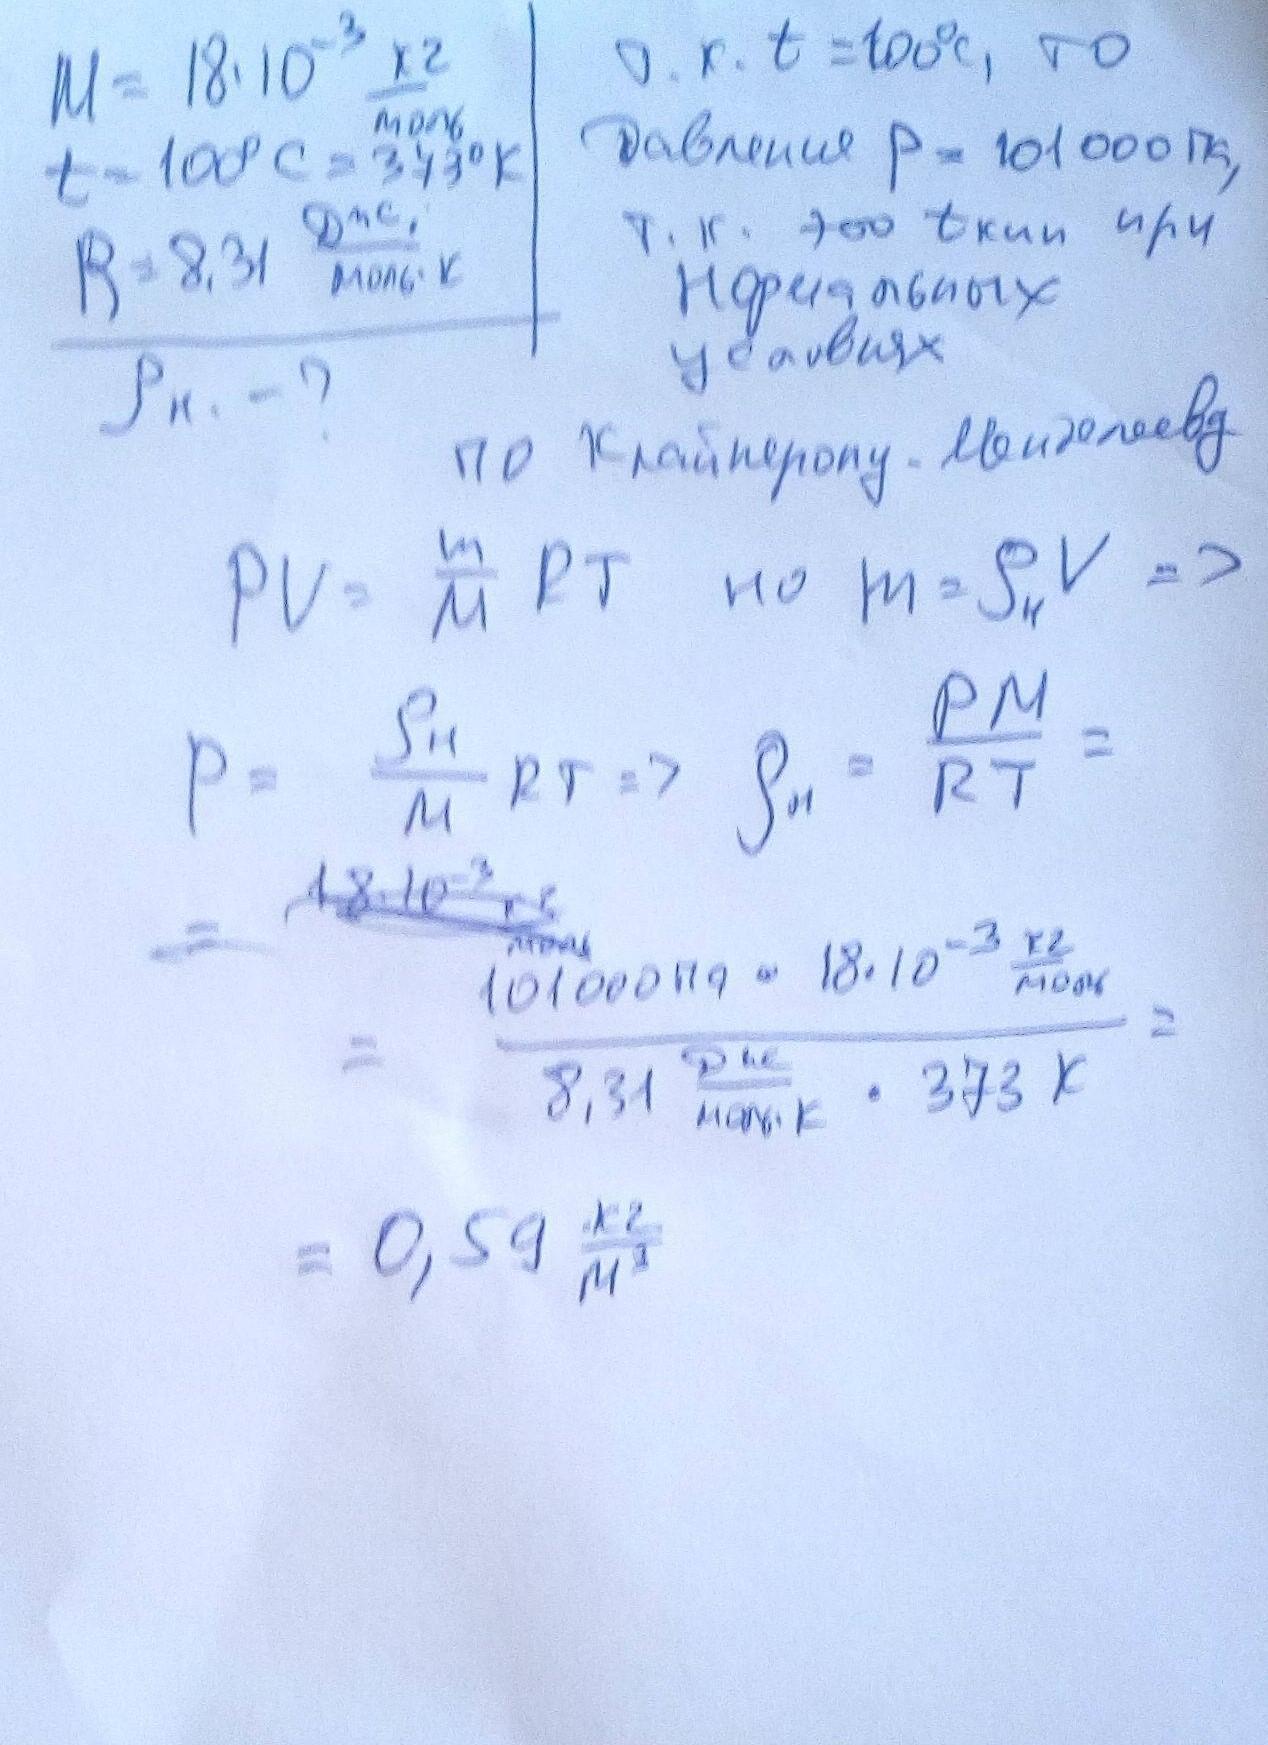 M = 18·10⁻³ кг/моль
t = 100°C = 373°К
R = 8,31 Дж/моль·К
ρн. - ?
т.к. t = 100°C, то
Давление P = 101000 Па,
т.к. это t кип при
Нормальных
условиях
по Клайперону-Менделеева
PV = m/M RT но m = ρнV =>
P = ρн/M RT => ρн = PM/RT =
= 18·10⁻³ кг/моль
= 101000 Па · 18·10⁻³ кг/моль / 8,31 Дж/моль·К · 373 К =
= 0,59 кг/м³